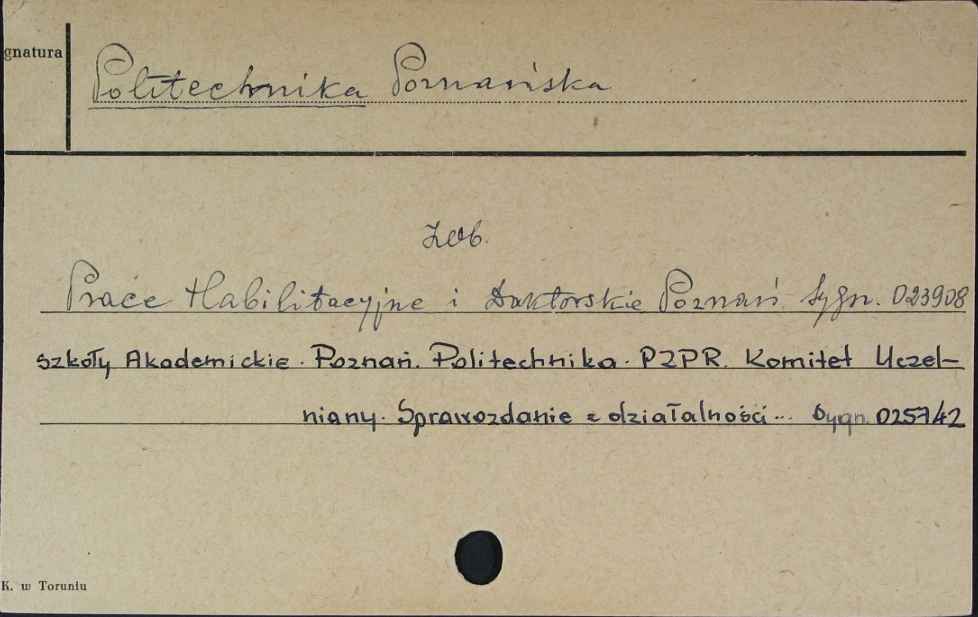 gnatura
Politechnika Poznańska
Zob.
Prace Habilitacyjne i Doktorskie Poznań Sygn. 023908
Szkoły Akademickie. Poznań. Politechnika. PZPR. Komitet Uczel-
niany. Sprawozdanie z działalności... Sygn. 025742
K. w Toruniu